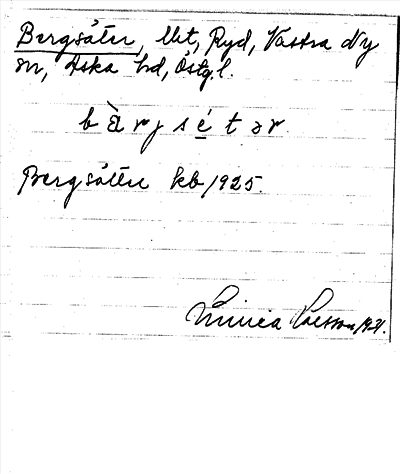 Bergsåter, lht, Ryd, Västra Ny
sn, Aska hd, Östg.l.
bàrjsétər
Bergsåter kb 1925.
Linnea Olsson 1931.